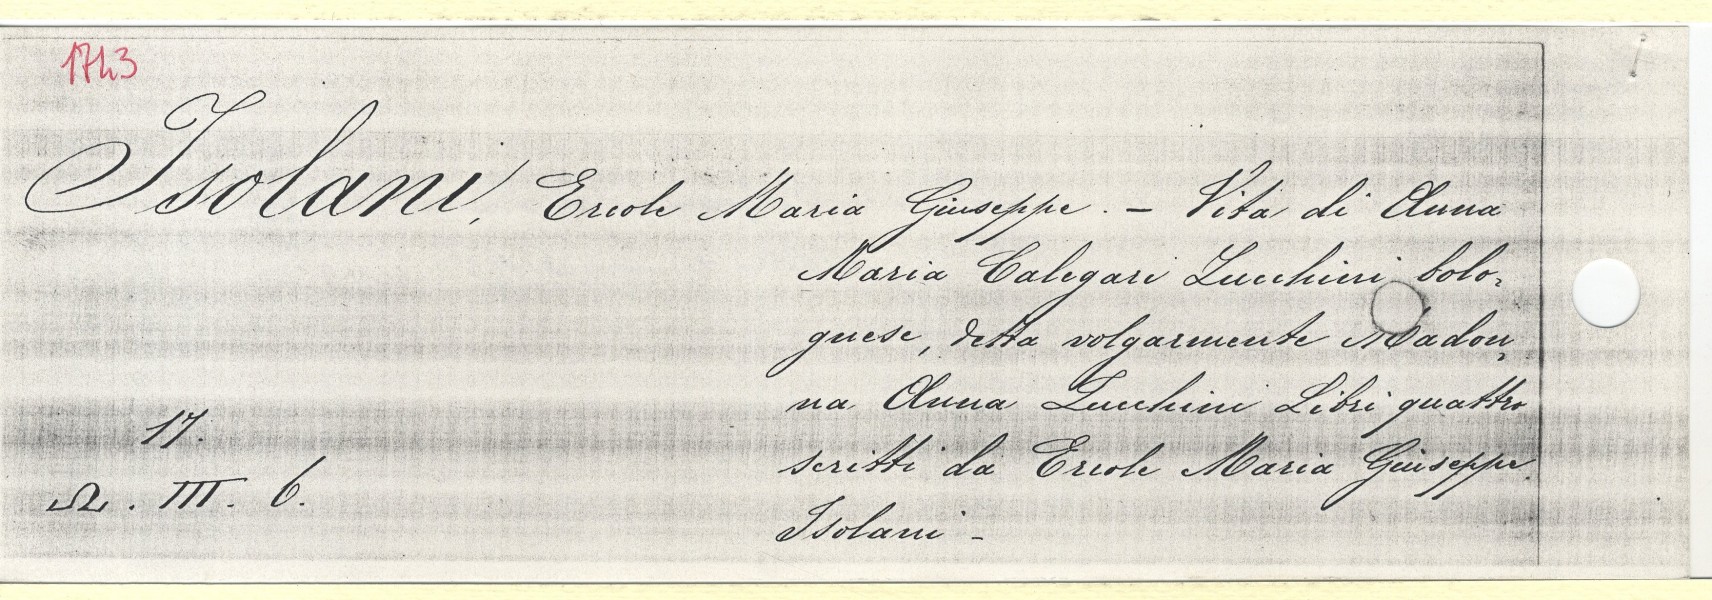 1743
Isolani, Ercole Maria Giuseppe. – Vita di Anna
Maria Calegari Zucchini bolo-
gnese, detta volgarmente Madon-
na Anna Zucchini Libri quattro
scritti da Ercole Maria Giuseppe
Isolani –
17.
Ω. III. 6.